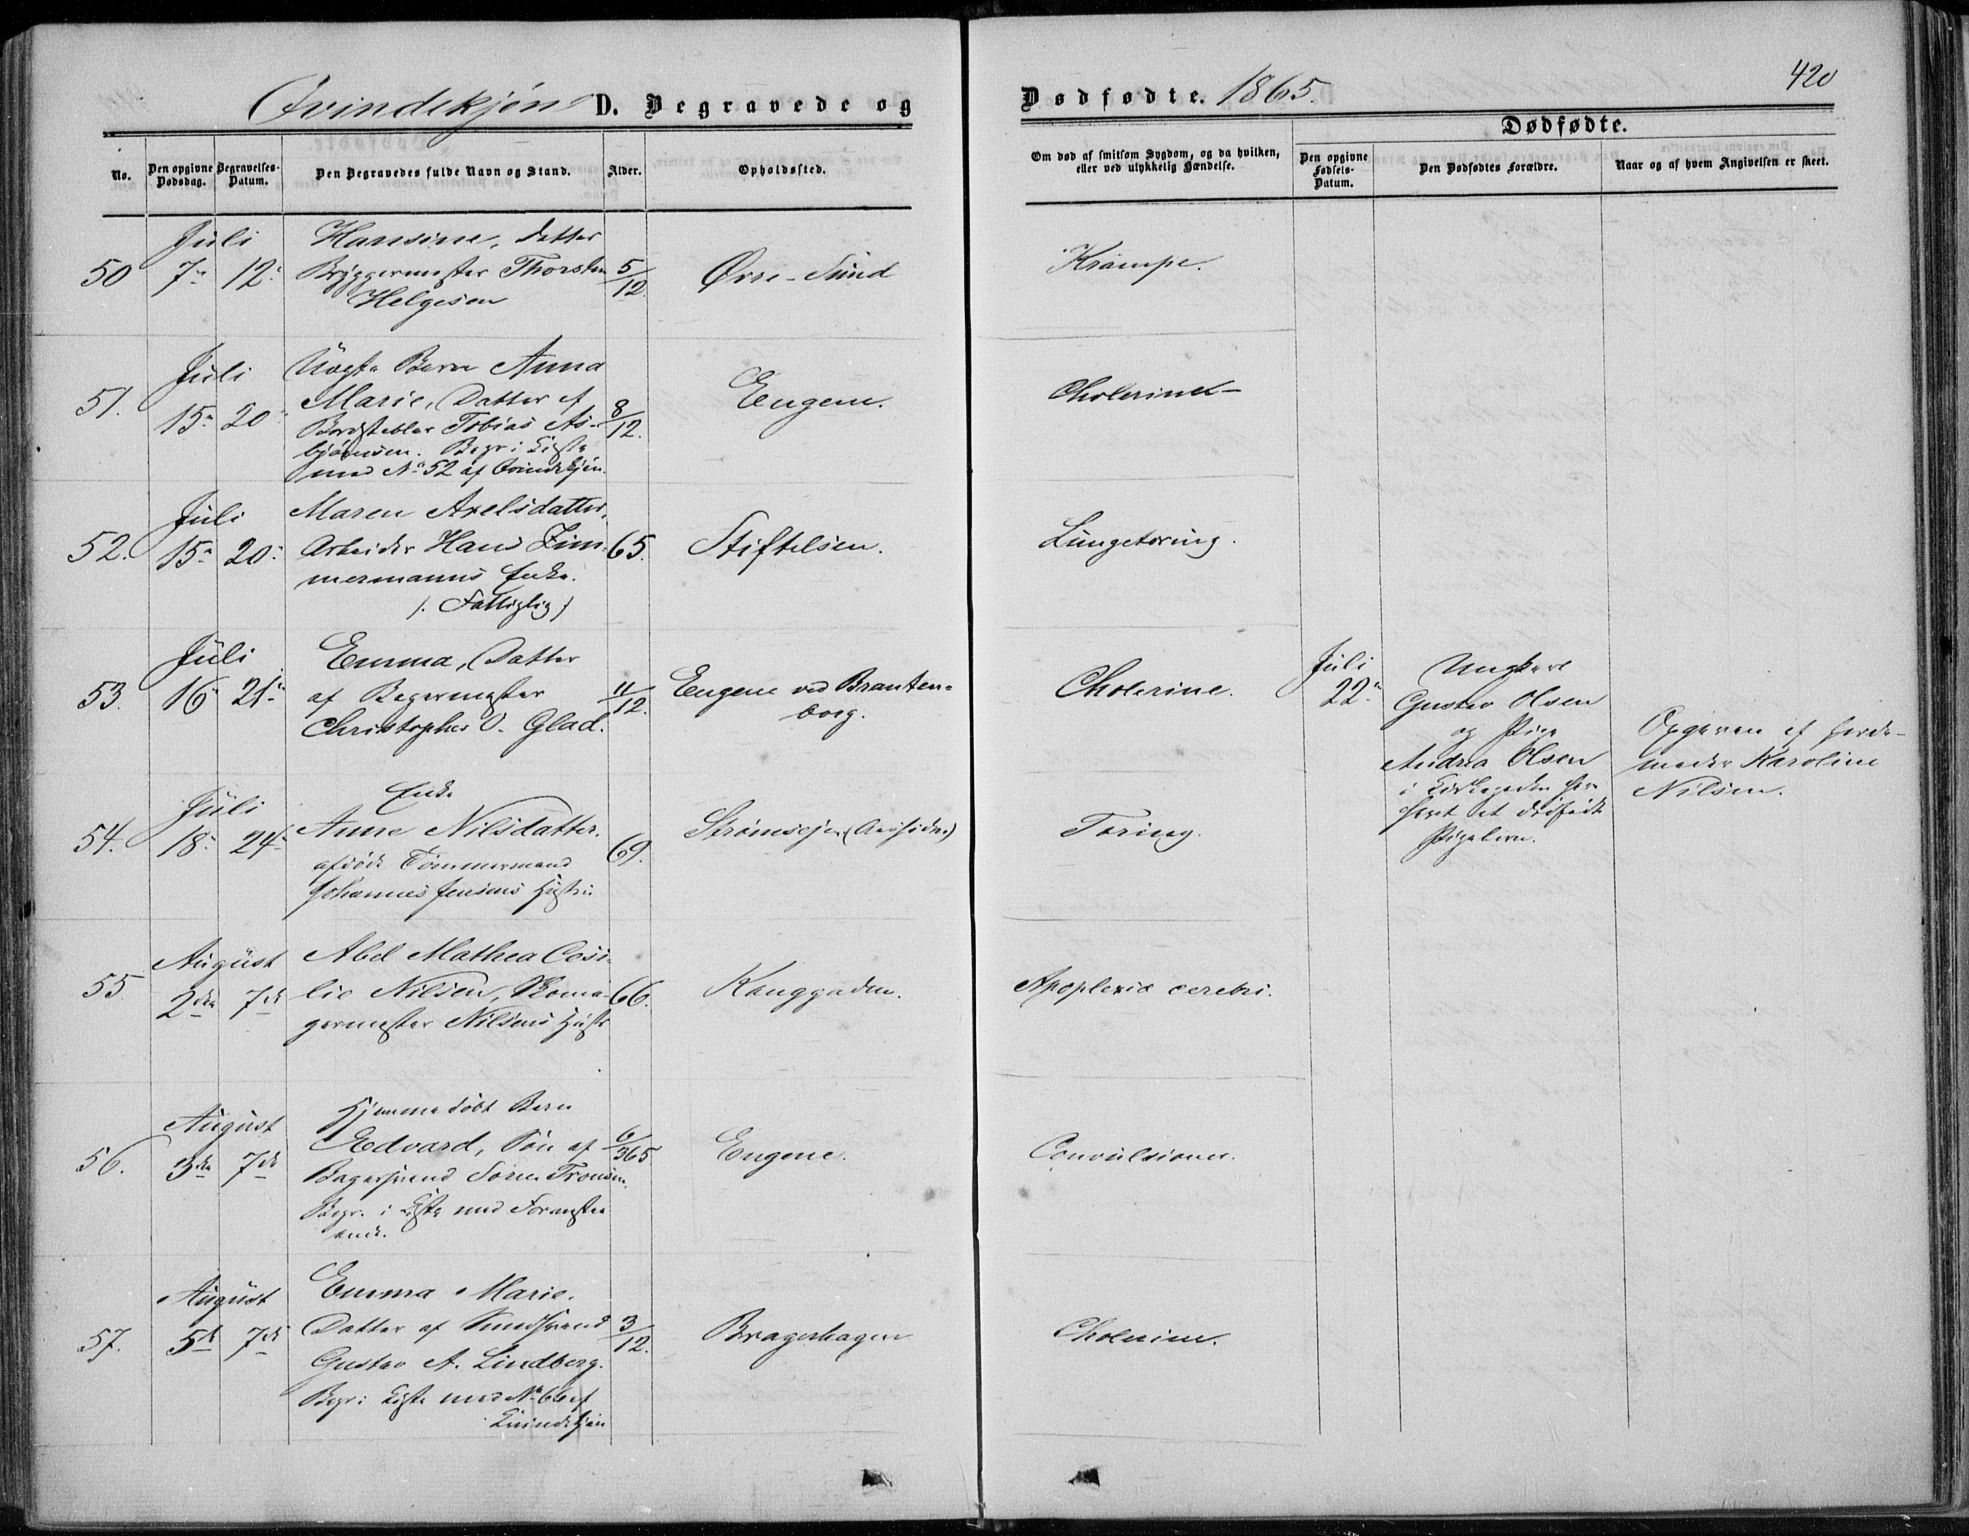 Qvindekjøn D. Begravede og
Dødfødte. 1865.
420
No.
Den opgivne Dødsdag.
Begravelses-Datum.
Den Begravedes fulde Navn og Stand.
Alder.
Opholdssted.
Om død af smitsom Sygdom, og da hvilken,
eller ved ulykkelig Hændelse.
Dødfødte.
Den opgivne Fødsels-Datum.
Den Dødfødtes Forældre.
Naar og af hvem Angivelsen er skeet.
Juli
50 7de 12te
Hansine, Datter
Bryggermester Thorsten
Helgesen
5/12
Øvre-Sund
Krampe.
Juli
51. 15de 20
Uægte Barn Anna
Marie, Datter af
Bordstabler Tobias As-
bjørnsen. Begr: i Kiste
med No 52 af Qvindekjøn.
8/12.
Engene.
Cholerine
Juli
52. 15de 20
Maren Axelsdatter,
Arbeider Hans Zim-
mermanns Enke.
/: Fattiglig /
65.
Stiftelsen.
Lungetæring.
Juli
53. 16 21
Emma, Datter
af Bagermester
Christopher O. Glad.
11/12.
Engene ved Branten-
borg.
Cholerine.
Juli
22
Ungkarl
Gustav Olsen
og Pige
Andrea Olsen
i
et dødfødt
Pigebarn.
Opgiven af Jorde-
moder Karoline
Nilsen.
Juli
54. 18 24
Enke
Anne Nilsdatter.
afdøde Tømmermand
Johannes Jensens Hustru
69.
Strømsøe
Tæring.
August
55 2den 7de
Abel Mathea Cesi-
lie Nilsen,
Nilsens Hustr
66.
Konggaden.
Apoplexia cerebri.
August
56. 3die 7de
Hjemmedøbt Barn
Edvard, Søn af
Bagersvend Søren Tronsen.
Begr. i Kiste med
6/365
Engene.
Convulsioner.
August
57. 5te 7de
Emma Marie.
Datter af Smedsvend
Gustav A. Lindberg.
Begr: i Kiste med No 66 af
Qvindekjøn
3/12.
Bragerhagen
Cholerine.